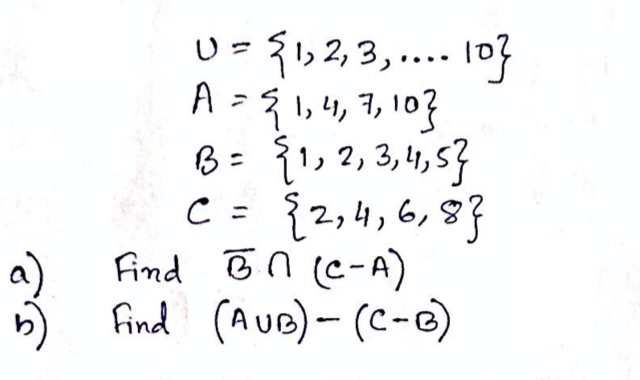 U = {1, 2, 3, .... 10}
A = {1, 4, 7, 10}
B = {1, 2, 3, 4, 5}
C = {2, 4, 6, 8}
a) Find B̅ ∩ (C-A)
b) Find (A∪B) - (C-B)